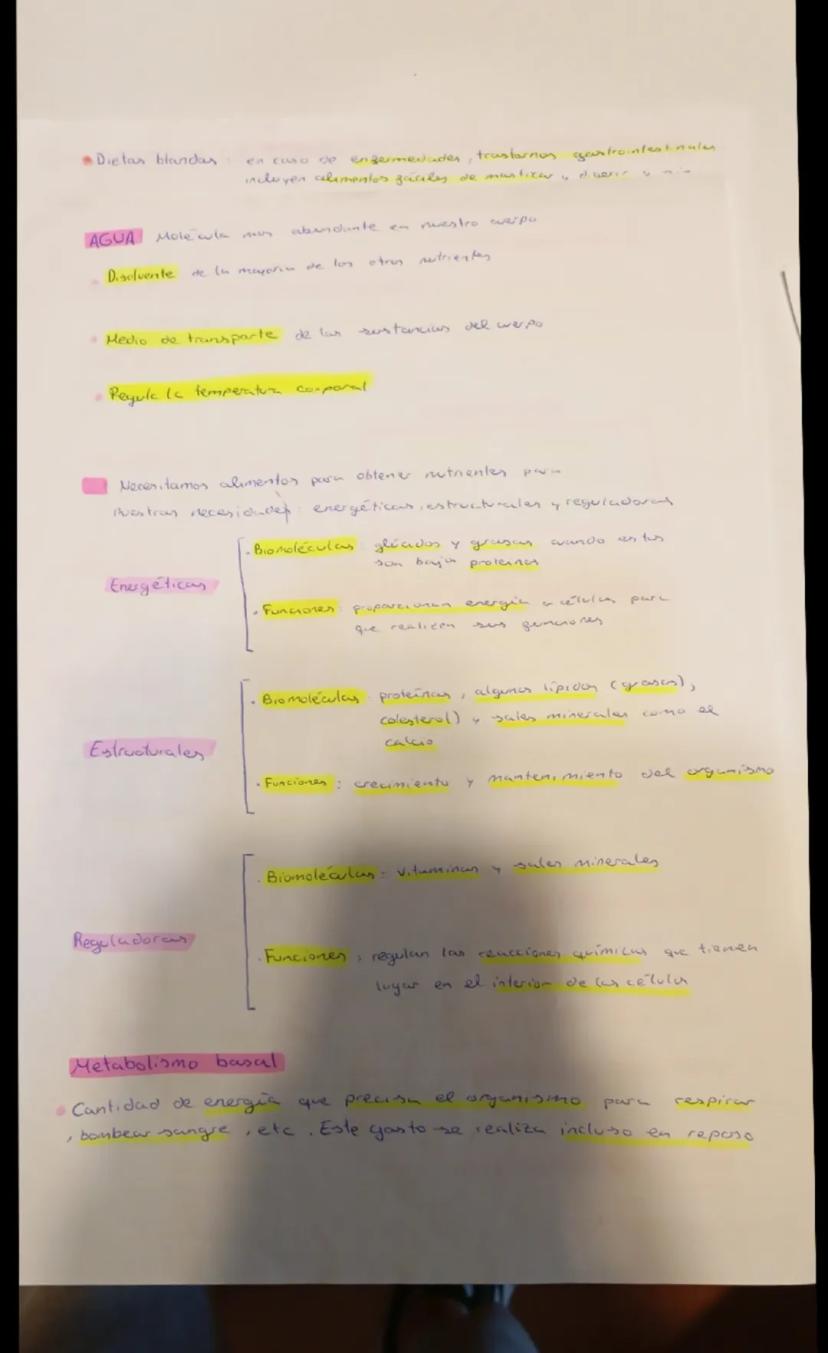 Dietas blandas: en caso de enfermedades, trastornos gastrointestinales
incluyen alimentos fáciles de masticar y digerir y
AGUA Molécula mas abundante en nuestro cuerpo
Disolvente de la mayoria de los otros nutrientes
Medio de transporte de las sustancias del cuerpo
Regula la temperatura corporal
Necesitamos alimentos para obtener nutrientes para
nuestras necesidades: energéticas, estructurales y reguladoras
Energéticas
· Biomoléculas: glúcidos y grasas cuando estos
son bajos proteinas
· Funciones: proporcionan energía a células para
que realicen sus funciones
Estructurales
· Biomoléculas: proteínas, algunos lípidos (grasas),
colesterol) y sales minerales como el
calcio
· Funciones: crecimiento y mantenimiento del organismo
Reguladoras
· Biomoléculas: vitaminas y sales minerales
· Funciones: regulan las reacciones químicas que tienen
lugar en el interior de las célula
Metabolismo basal
Cantidad de energía que precisa el organismo para respirar
, bombear sangre, etc. Este gasto se realiza incluso en reposo